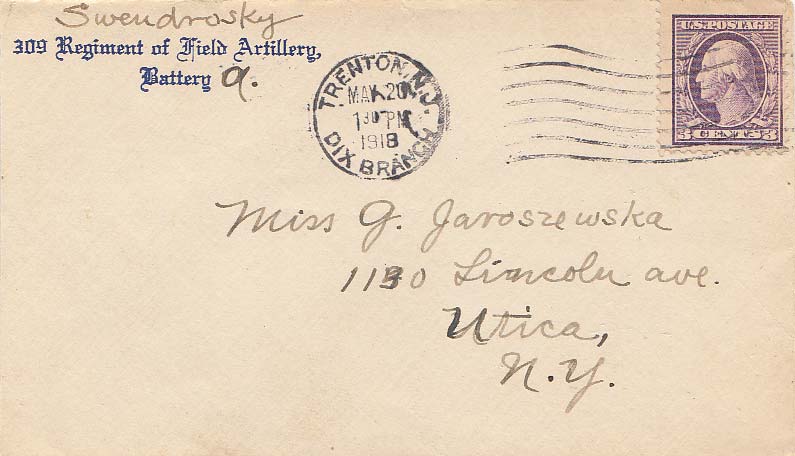 Swendrosky
309 Regiment of Field Artillery,
Battery A.
TRENTON, N.J.
MAR 20
1 30 PM
1918
DIX BRANCH
U.S. POSTAGE
3 CENTS 3
Miss G. Jaroszewska
1130 Lincoln ave.
Utica,
N.Y.